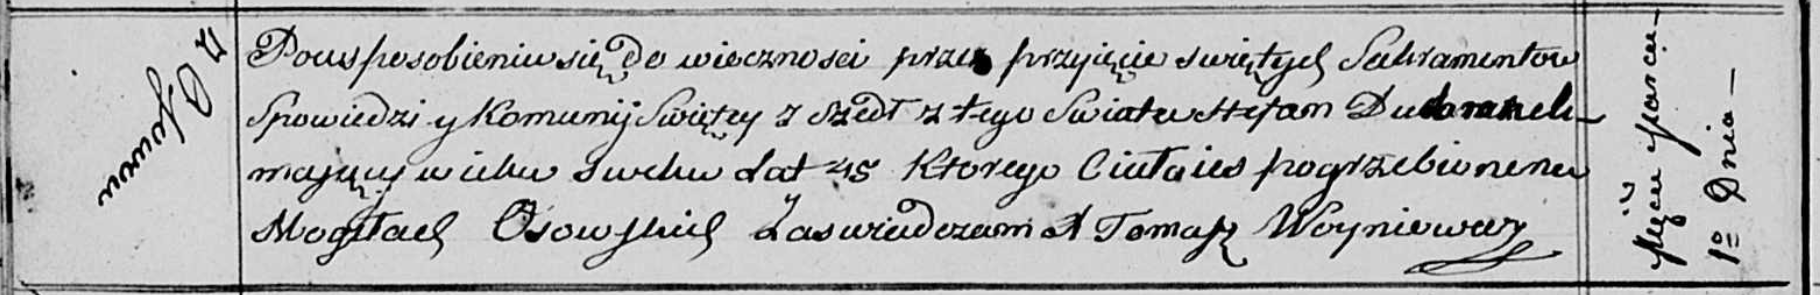 z Osowa
Pousposobieniu się do wieczności przez przyięcie swiętych Sakramentow
Spowiedzi y Komunij Swiętey z szedł z tego Swiata Stefan
maiący wieku swehu lat 45 Ktorego Ciało ies pogrzebione na
Mogiłach Osowskich Zaswiadczam X Tomasz Woyniewicz
Mięca Marca
1º Dnia